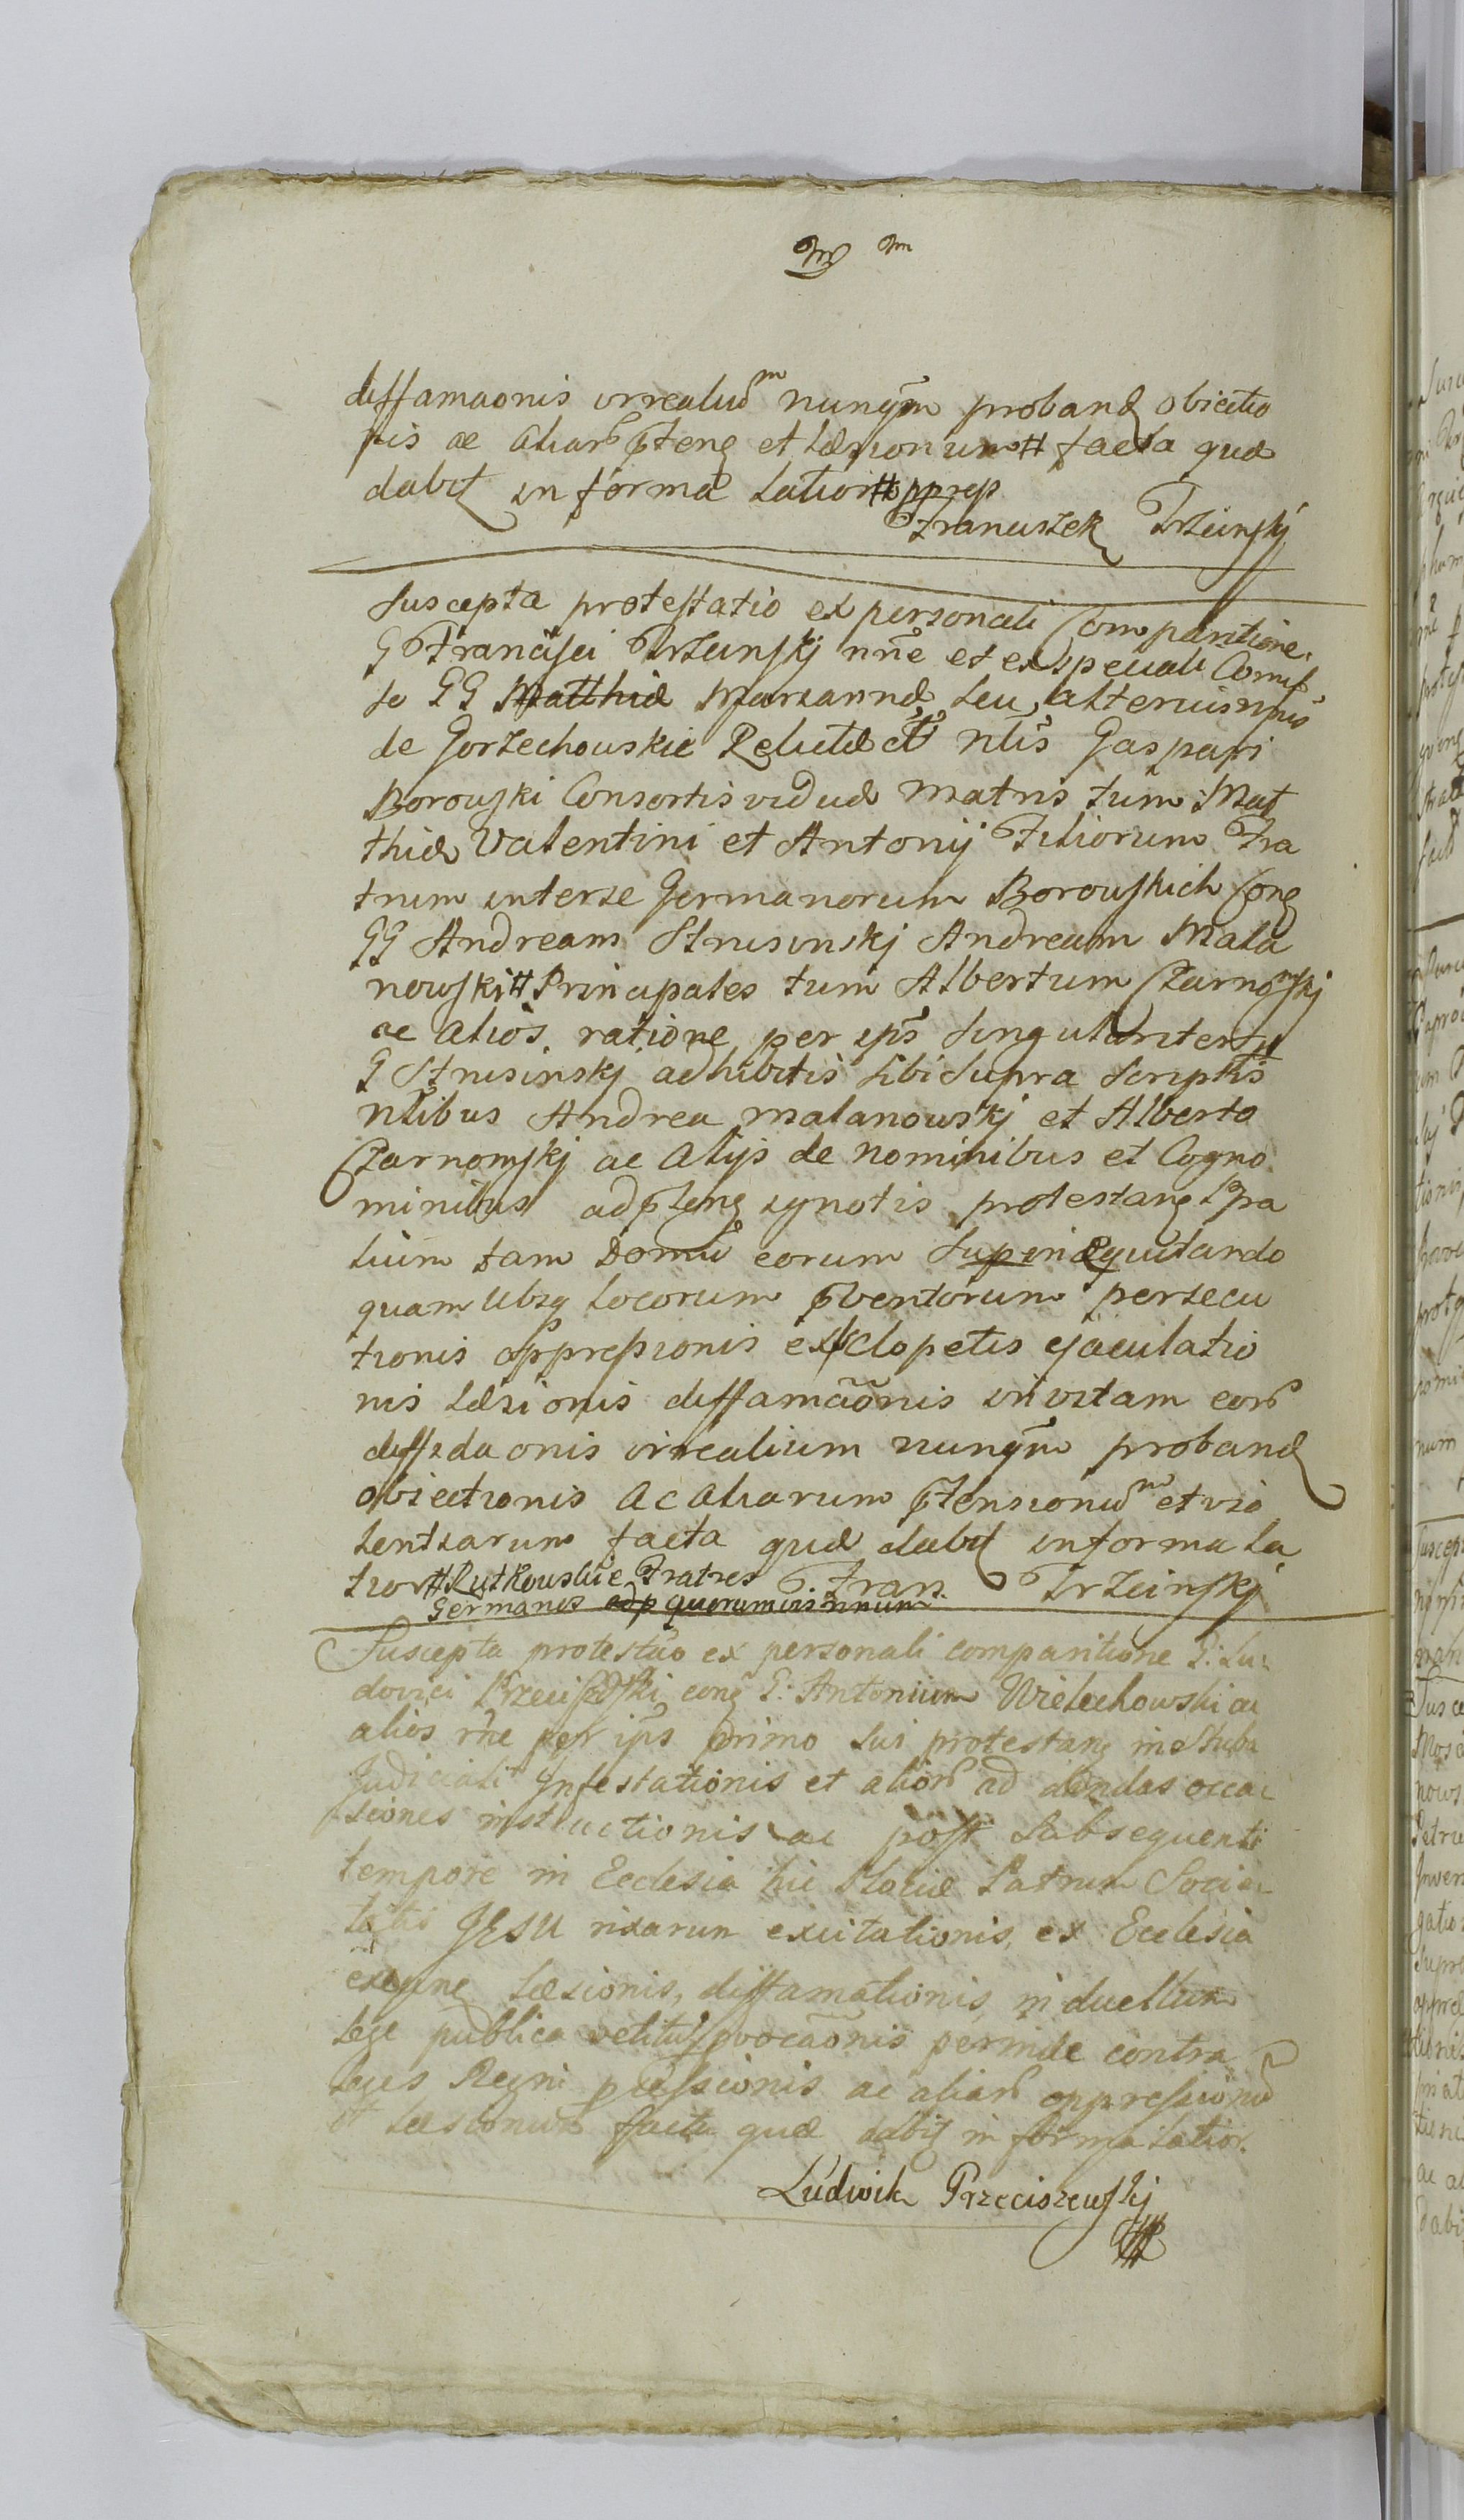 diffamaonis irrealiũm nunqm̃ proband obiectio
nis ac aliarũ ptens et læsionum # facta quæ
dabit in forma latiori # pprep
Franciszek Trzcinskj
Suscepta protestatio ex personali Comparitione
G Francisci Trzcinskj nñe et ex speciali Comis
so GG Matthiæ Mariannæ seu alteriusnnis
de Gorzechowskie Relictæ nlis Gaspari
Borowski Consortis viduæ matris tum Mat
thiæ Valentini et Antonij Filiorum Fra
trum interse Germanorum Borowskich Cong
GG Andream Strusinskj Andream Mala
nowski # Principales tum Albertum Czarnomskj
ac alios ratione per ips singulariter p
G Strusinskj adhibitis sibi supra scriptis
nlibus Andrea malanowskj et Alberto
Czarnomskj ac alijs de nominibus et Cogno
minibus ad ptens ignotis protestang
tium tam Domũ eorum superiæquitando
quam ubiq locorum pventorum persecu
tionis oppressionis ex sclopetis ejaculatio
nis læsionis diffamãonis in vitam eorũ
diffidaonis irrealium nunqm̃ proband
obiectionis ac aliarum ptensionũm et vio
lentiarum facta quæ dabit in forma la
tiori # Rutkowskie Fratres Fran. Trzcinskj
Germanos adp quorumvis nnum
Suscepta protestão ex personali comparitione G: Lu
dovici Przeciszewski cong G: Antonium Wielechowski ac
alios rñe per ips primo sui protestang in Stuba
Judiciali Infestationis et aliorũ ad dandas occa
siones instructionis ac post subsequenti
tempore in Ecclesia hic Plociæ Patrum Socie
tatis JESU rixarum excitationis, ex Ecclesia
læsionis, diffamationis, in duellum
lege publica vetitũ pvocãonis perinde contra
leges Regni ac aliarũ oppressionũ
et læsionum facta quæ dabit in forma latiori.
Ludwik Przeciszewskj